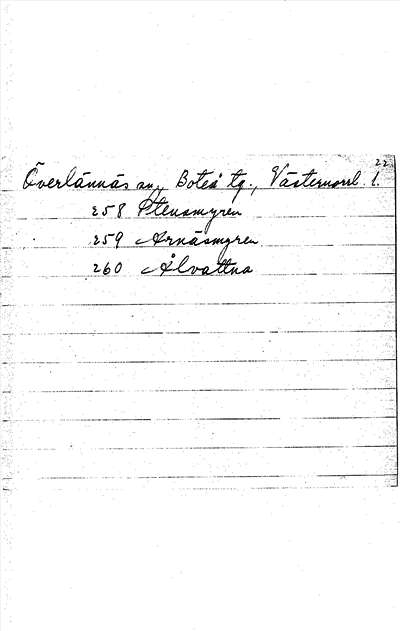 22
Överlännäs sn, Boteå tg., Västernorrl. l.
258 Stensmyren
259 Arnäsmyren
260 Älvattna